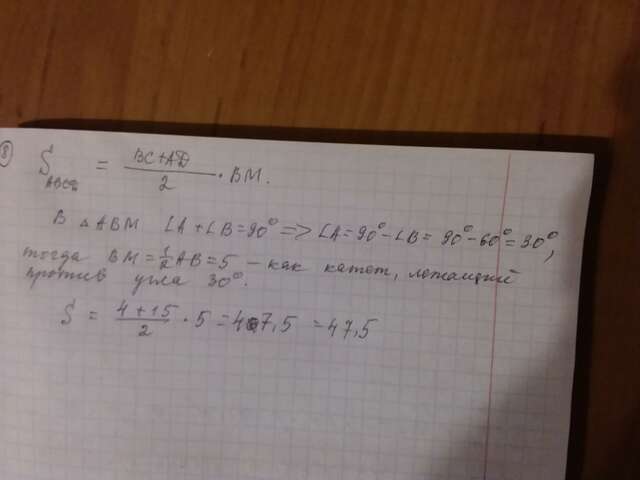 8) S ABCD = (BC+AD)/2 · BM.
В △ ABM ∠A + ∠B = 90° => ∠A = 90° - ∠B = 90° - 60° = 30°,
тогда BM = 1/2 AB = 5 – как катет, лежащий
против угла 30°.
S = (4+15)/2 · 5 = 47,5 = 47,5